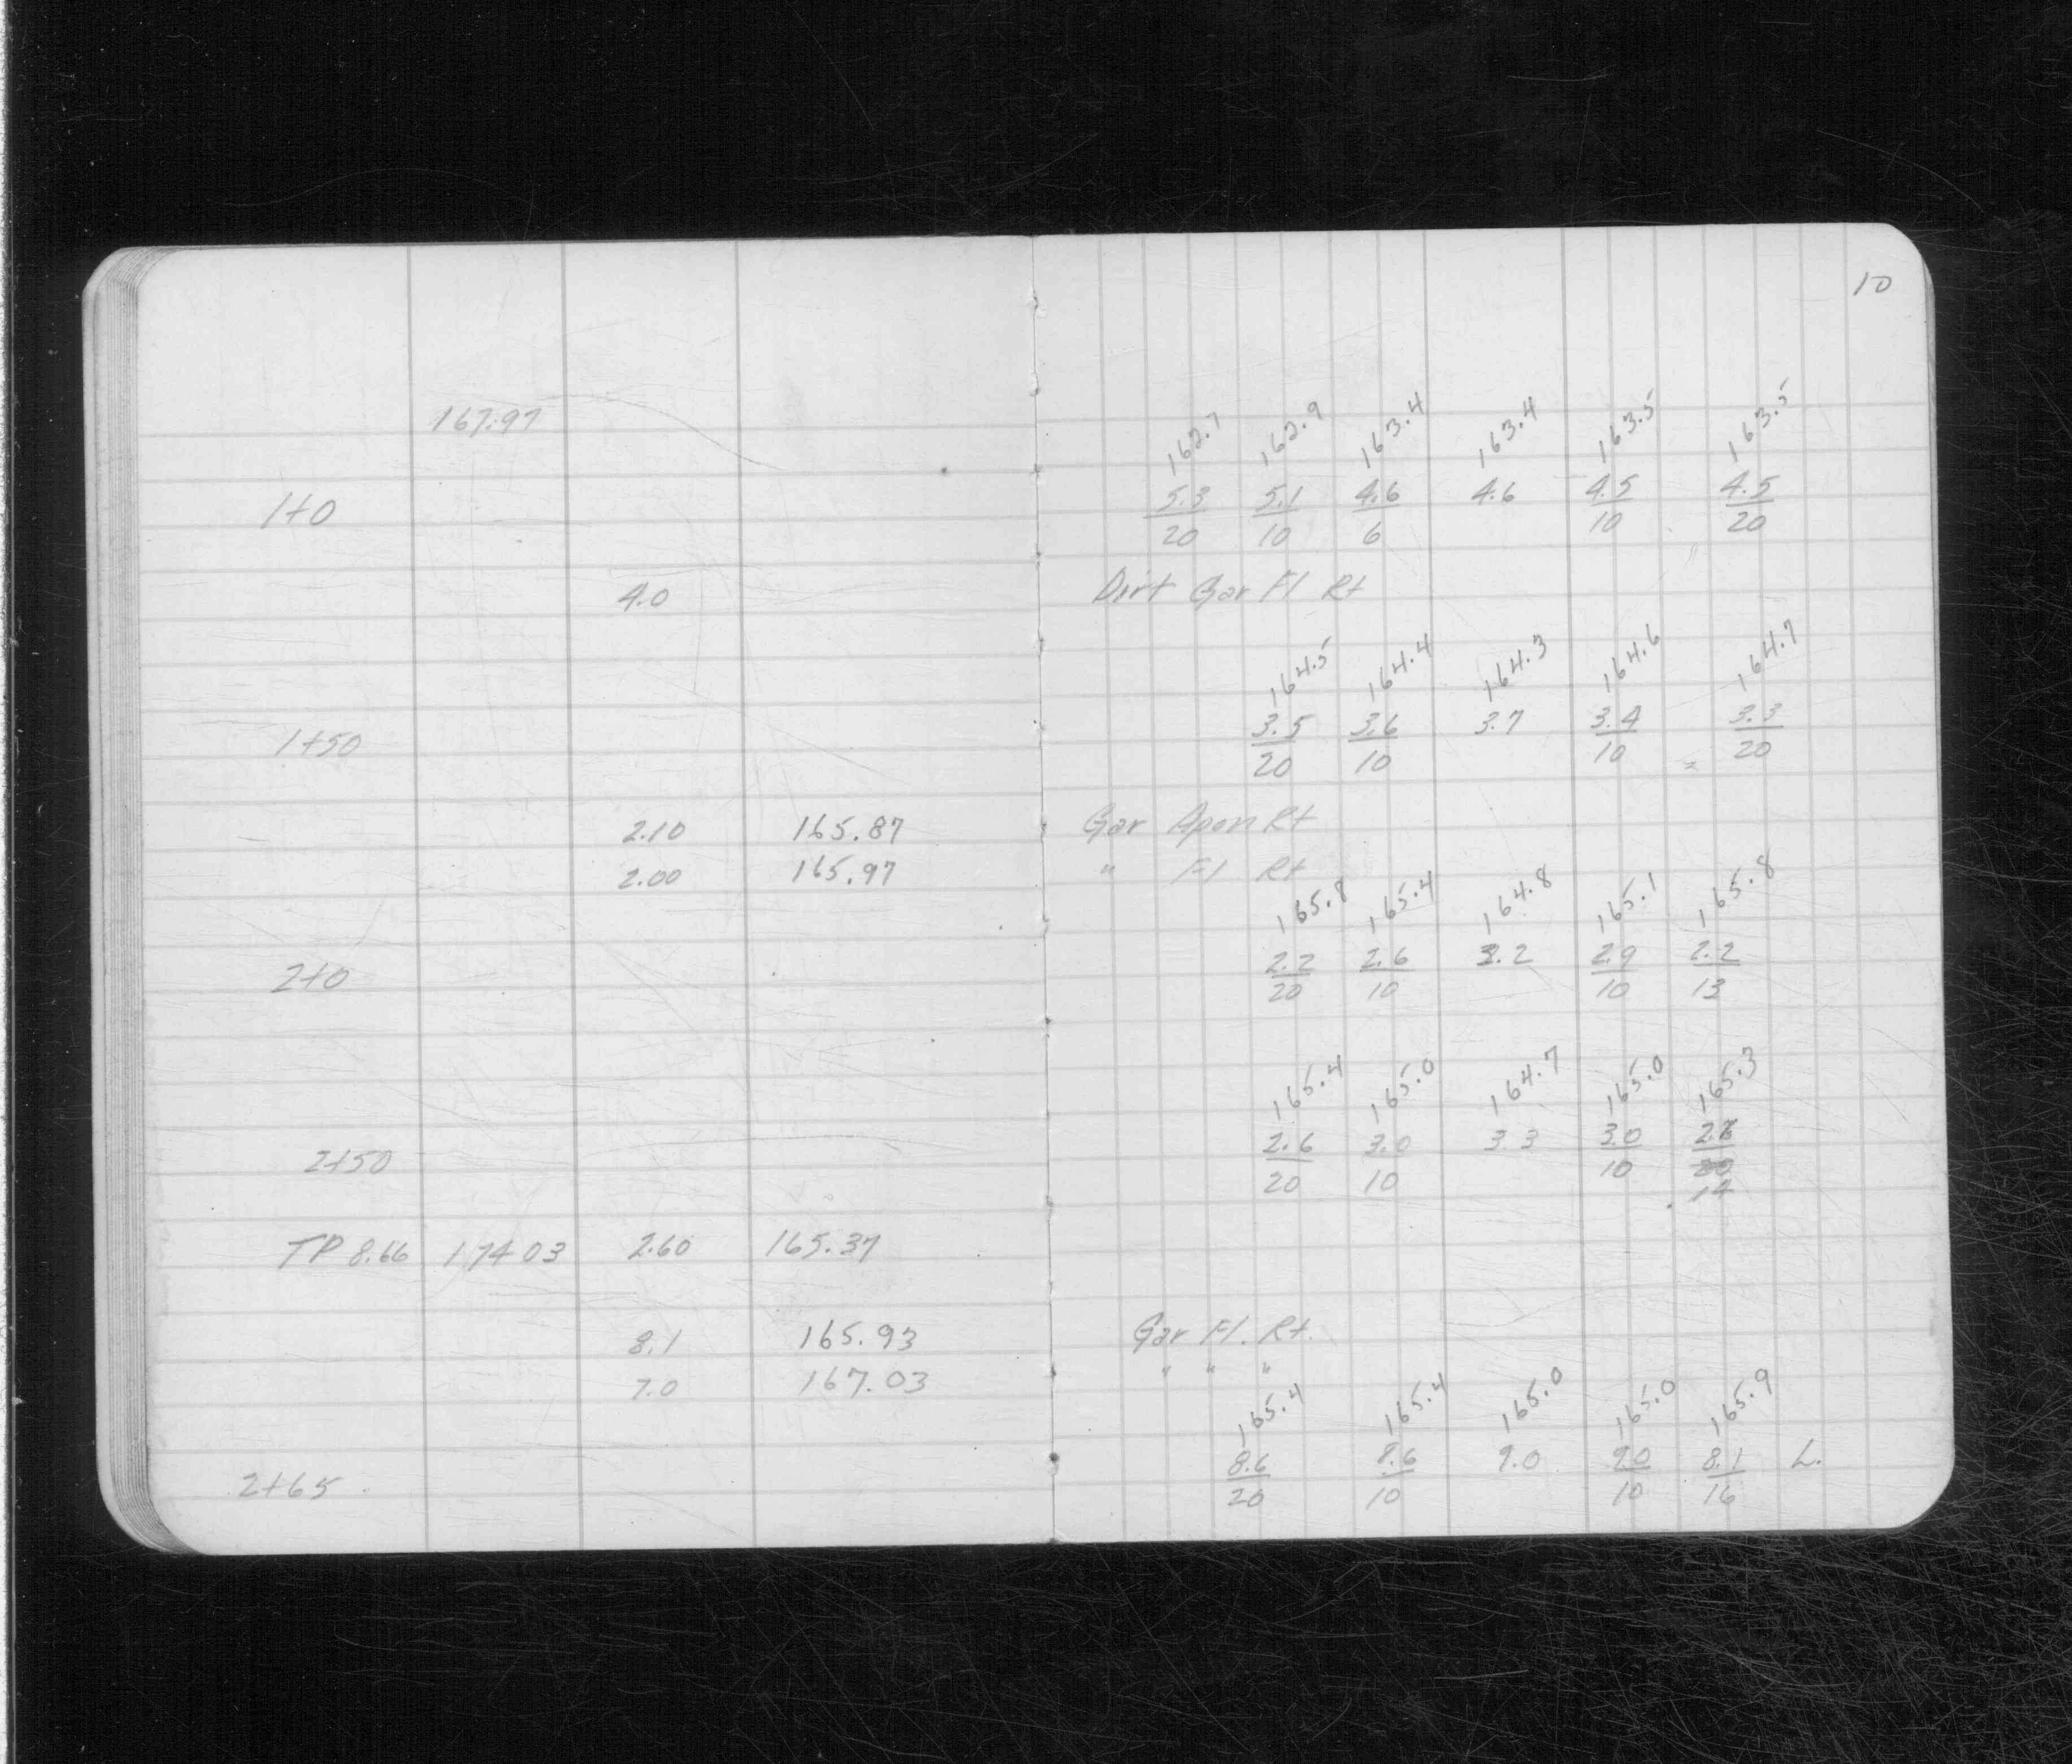 10
167.97
162.7 162.9 163.4 163.4 163.5 163.5
1+0 5.3 5.1 4.6 4.6 4.5 4.5
20 10 6 10 20
4.0 Dirt Gar Fl Rt
164.5 164.4 164.3 164.6 164.7
1+50 3.5 3.6 3.7 3.4 3.3
20 10 10 20
2.10 165.87 Gar Apon Rt
2.00 165.97 " Fl Rt
165.8 165.4 164.8 165.1 165.8
2+0 2.2 2.6 3.2 2.9 2.2
20 10 10 13
165.4 165.0 164.7 165.0 165.3
2+50 2.6 3.0 3.3 3.0
20 10 10
14
TP 8.66 174.03 2.60 165.37
8.1 165.93 Gar Fl. Rt.
7.0 167.03 " " "
165.4 165.4 165.0 165.0 165.9
2+65 8.6 8.6 9.0 9.0 8.1 L.
20 10 10 16